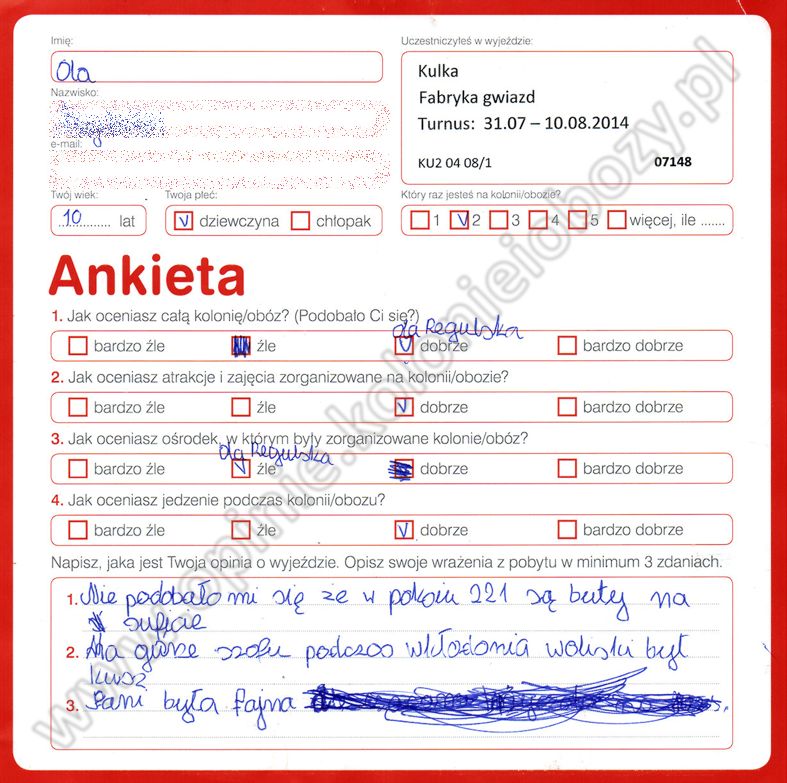 Imię:
Ola
Nazwisko:
e-mail:
Twój wiek:
10 lat
Twoja płeć:
V dziewczyna chłopak
Uczestniczyłeś w wyjeździe:
Kulka
Fabryka gwiazd
Turnus: 31.07 – 10.08.2014
KU2 04 08/1 07148
Który raz jesteś na kolonii/obozie?
1 V 2 3 4 5 więcej, ile .......
Ankieta
1. Jak oceniasz całą kolonię/obóz? (Podobało Ci się?)
Ola Regulska
bardzo źle źle V dobrze bardzo dobrze
2. Jak oceniasz atrakcje i zajęcia zorganizowane na kolonii/obozie?
bardzo źle źle V dobrze bardzo dobrze
3. Jak oceniasz ośrodek, w którym były zorganizowane kolonie/obóz?
Ola Regulska
bardzo źle V źle dobrze bardzo dobrze
4. Jak oceniasz jedzenie podczas kolonii/obozu?
bardzo źle źle V dobrze bardzo dobrze
Napisz, jaka jest Twoja opinia o wyjeździe. Opisz swoje wrażenia z pobytu w minimum 3 zdaniach.
1. Nie podobało mi się że w pokoiu 221 są buty na
suficie
2. Na górze szafy podczas wkładania woliski był
kurz
3. Pani była fajna
www.opinie.kolonieiobozy.pl